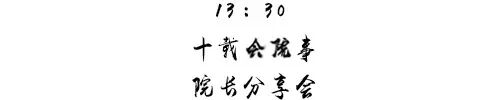 13：30
十载会院事
院长分享会